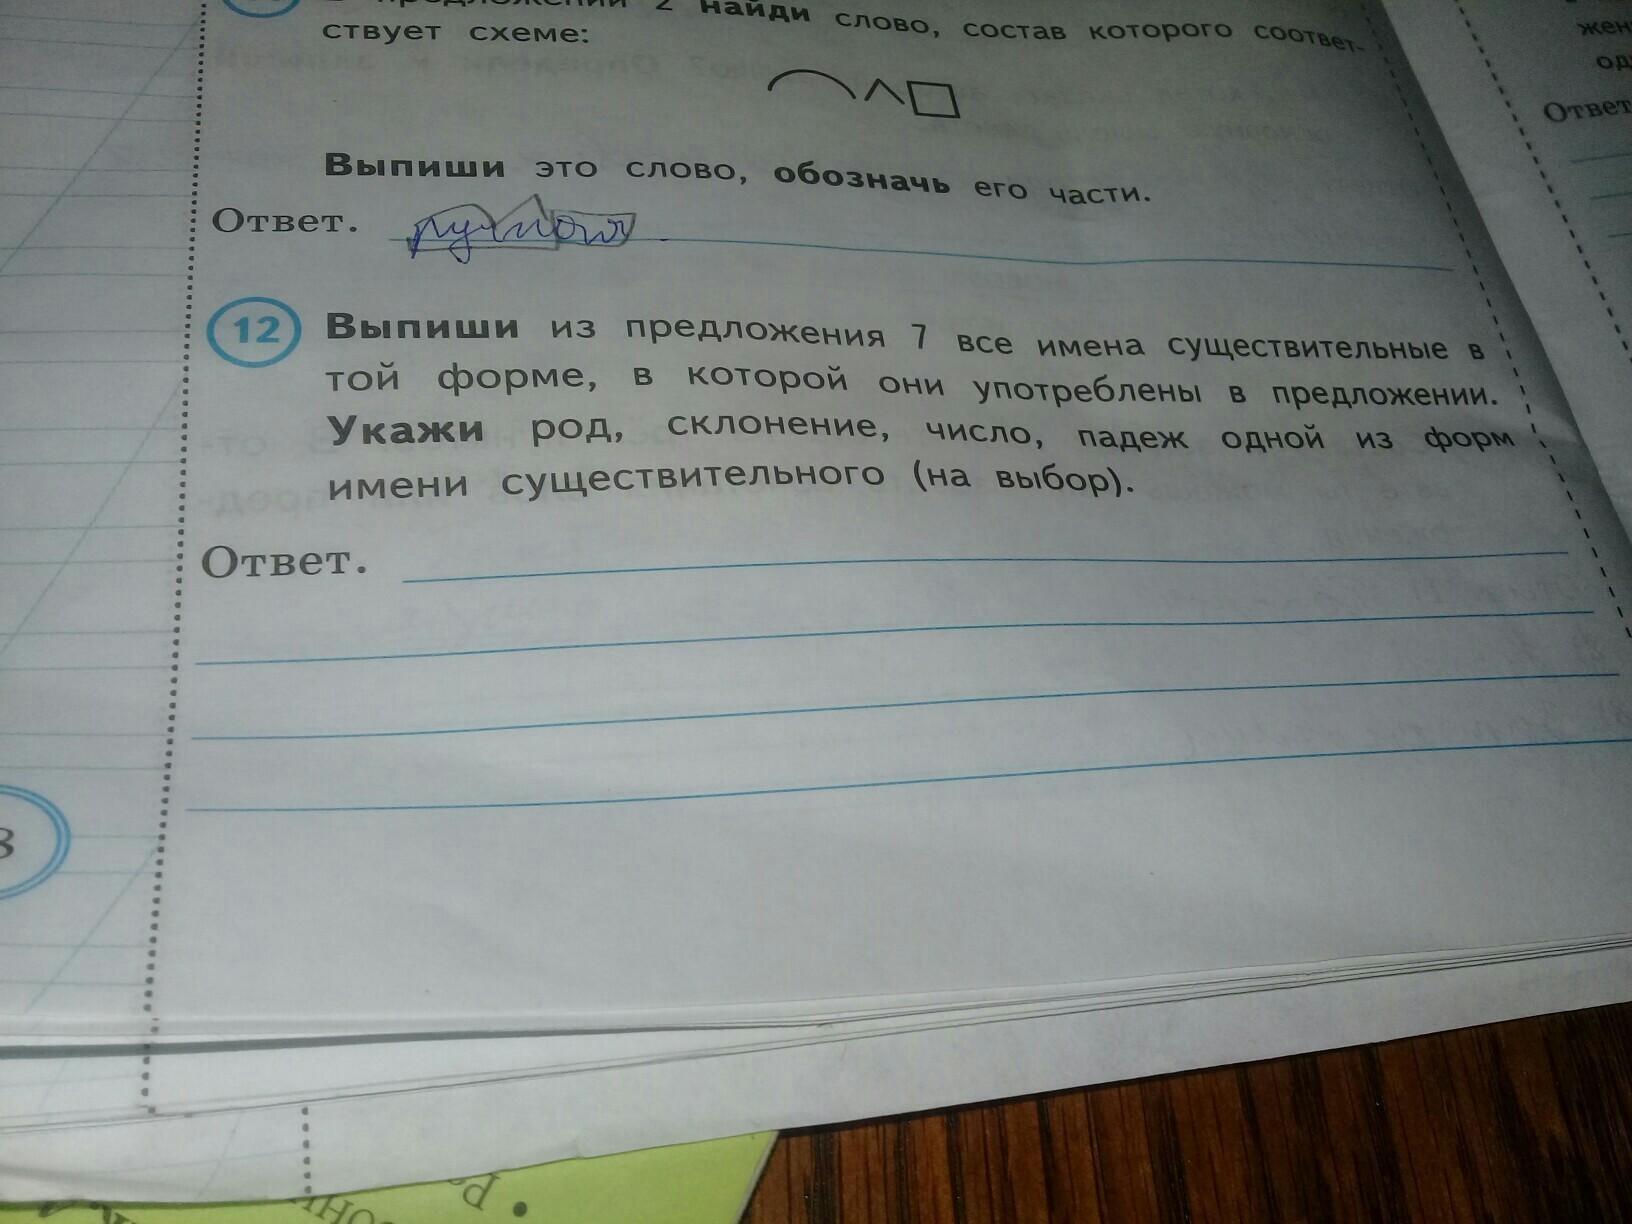 2 найди слово, состав которого соответ-
ствует схеме:
Выпиши это слово, обозначь его части.
Ответ.
12 Выпиши из предложения 7 все имена существительные в
той форме, в которой они употреблены в предложении.
Укажи род, склонение, число, падеж одной из форм
имени существительного (на выбор).
Ответ.
жен
од
Ответ